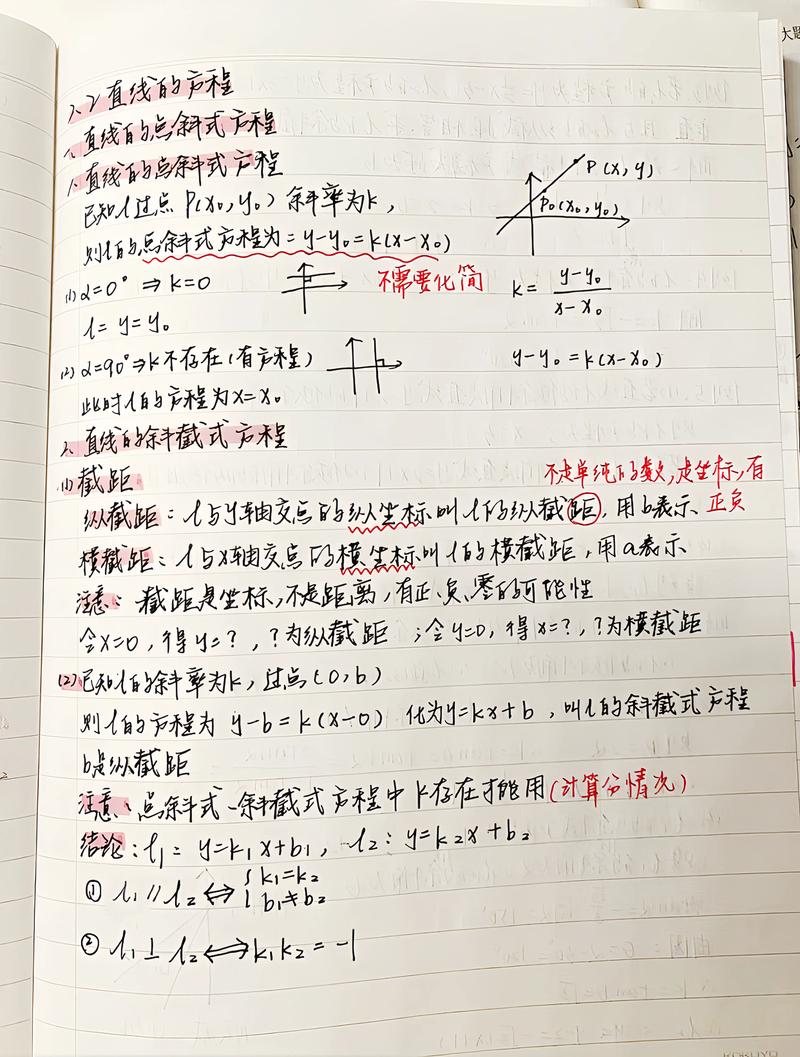 2.2 直线的方程
一、直线的点斜式方程
1、直线的点斜式方程
已知l过点 P(x₀,y₀) 斜率为k,
则l的点斜式方程为: y-y₀=k(x-x₀)
P(x,y)
P₀(x₀,y₀)
(1) α=0° ⇒ k=0
不需要化简
k = (y-y₀)/(x-x₀)
l: y=y₀
(2) α=90° ⇒ k不存在(有方程)
y-y₀=k(x-x₀)
此时l的方程为x=x₀
2、直线的斜截式方程
(1) 截距
不是单纯的数,是坐标,有
正负
纵截距: l与y轴交点的纵坐标叫l的纵截距, 用b表示
横截距: l与x轴交点的横坐标叫l的横截距, 用a表示
注意: 截距是坐标, 不是距离, 有正、负、零的可能性
令x=0, 得y=?, ?为纵截距 ; 令y=0, 得x=?, ?为横截距
(2) 已知l的斜率为k, 过点(0,b)
则l的方程为 y-b=k(x-0) 化为y=kx+b, 叫l的斜截式方程
b是纵截距
注意: 点斜式、斜截式方程中k存在才能用(计算分情况)
结论: l₁: y=k₁x+b₁, l₂: y=k₂x+b₂
① l₁∥l₂ ⇔ { k₁=k₂
b₁≠b₂
② l₁⊥l₂ ⇔ k₁k₂=-1
大题
KOKUYO